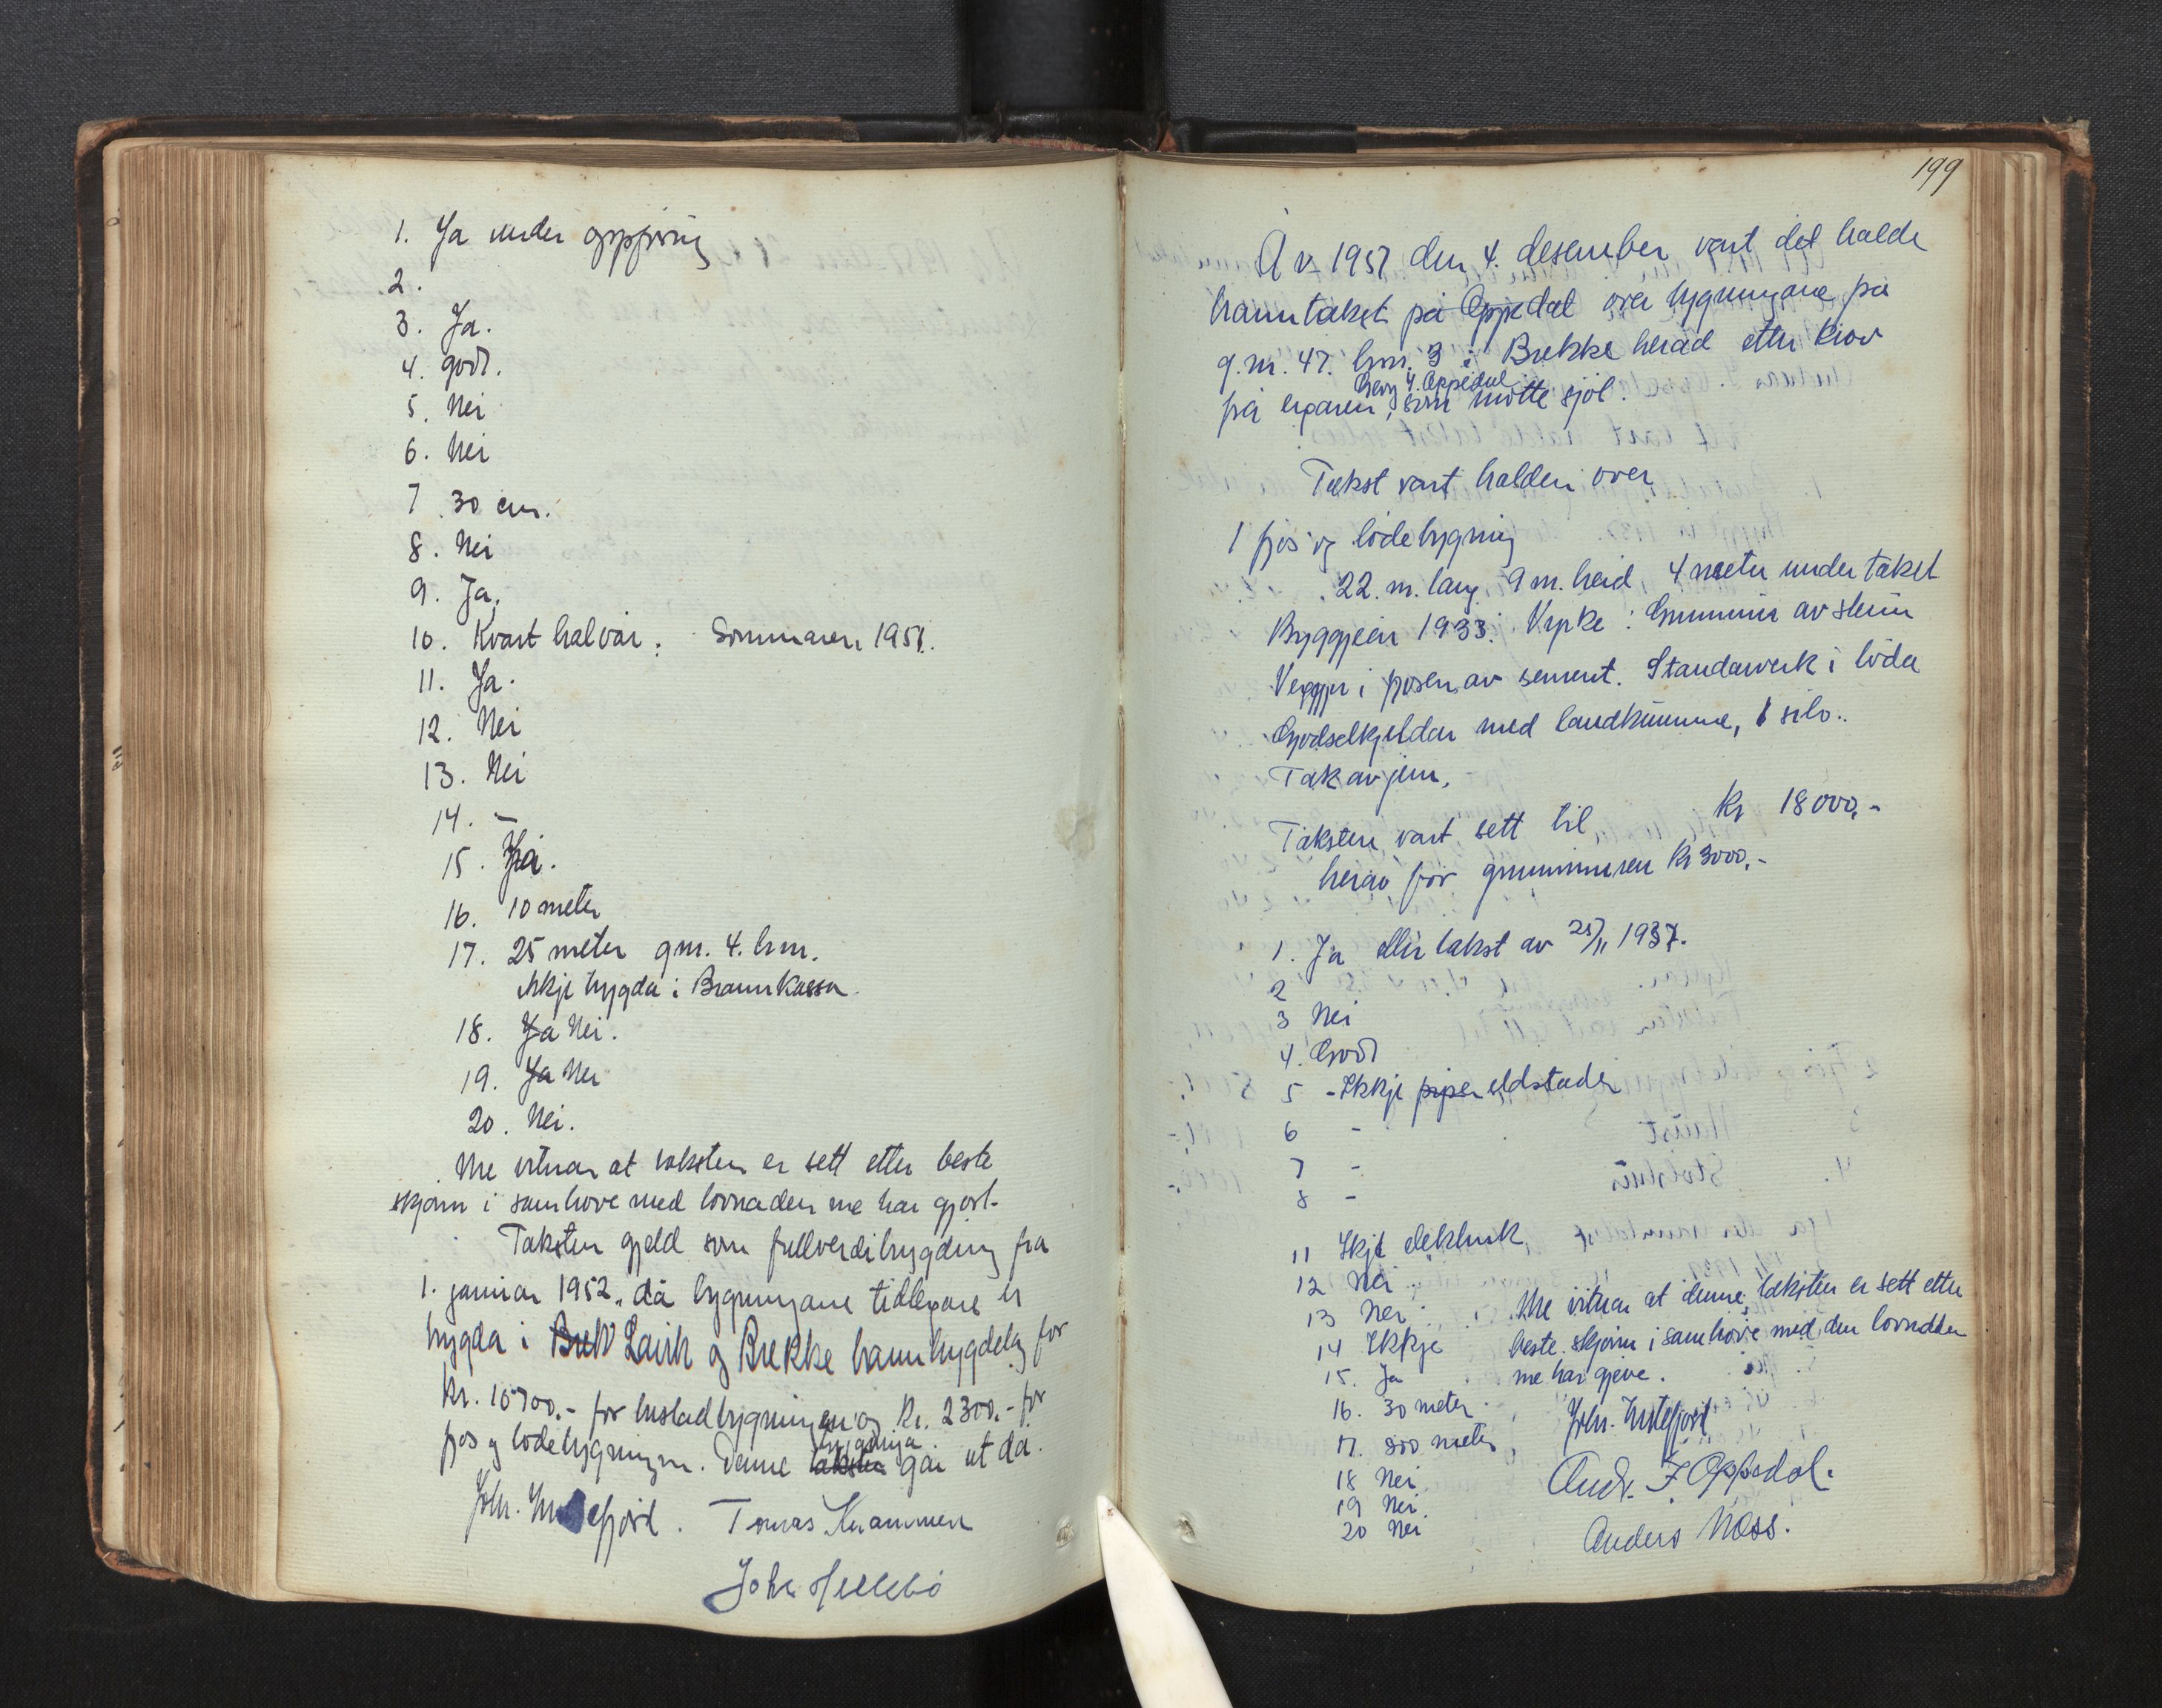 1. Ja under oppføring
2.
3. Ja.
4. godt.
5. Nei
6. Nei
7. 30 cm.
8. Nei
9. Ja.
10. Kvart halvår. Sommaren 1951.
11. Ja.
12. Nei
13. Nei
14. -
15. Ja.
16. 10 meter
17. 25 meter gnr. 4. bnr.
Ikkje trygda i Brannkassa.
18. Ja Nei.
19. Ja Nei
20. Nei.
Me vitnar at taksten er sett etter beste
skjønn i samhøve med lovnaden me har gjort.
Taksten gjeld som fullverditrygding fra
1. januar 1952, då bygningane tidlegare er
trygda i Lavik og Brekke branntrygdelag for
kr. 10700.- for hustadbygningen og kr. 2300.- for
fjos og lødebygningen. Denne taksten trygdinga går ut då.
Joh. Instefjord. Tomas Krammer
Joh. Hellebö
199
År 1951 den 4. desember vart det halde
branntakst på Oppedal over bygningane på
g.nr. 47. bnr. 3 i Brekke herad etter krav
frå eigaren, Georg 4. Oppedal som møtte sjøl.
Takst vart halden over
1 fjos og lødebygning
22. m. lang 9 m. breid, 4 meter under taket
Byggjeår 1933. Verke: Grunnmur av stein
Vegger i fjosen av sement. Standarverk i løda
Gjødselkjeldar med landkumme, 1 silo.
Tak av jern.
Taksten vart sett til kr 18000.-
herav for grunnmuren kr 3000.-
1. Ja eller takst av 25/11 1937.
2
3 Nei
4. Godt
5 - Ikkje piper eldstader
6 -
7 -
8 -
11 Ikkje elektrisk
12 Nei
13 Nei
14 Ikkje
15. Ja
16. 30 meter.
17. 800 meter
18 Nei
19 Nei
20 Nei
Me vitnar at denne taksten er sett etter
beste skjønn i samhøve med den lovnaden
me har gjeve.
Joh. Instefjord
Andr. I. Oppedal.
Anders Næss.